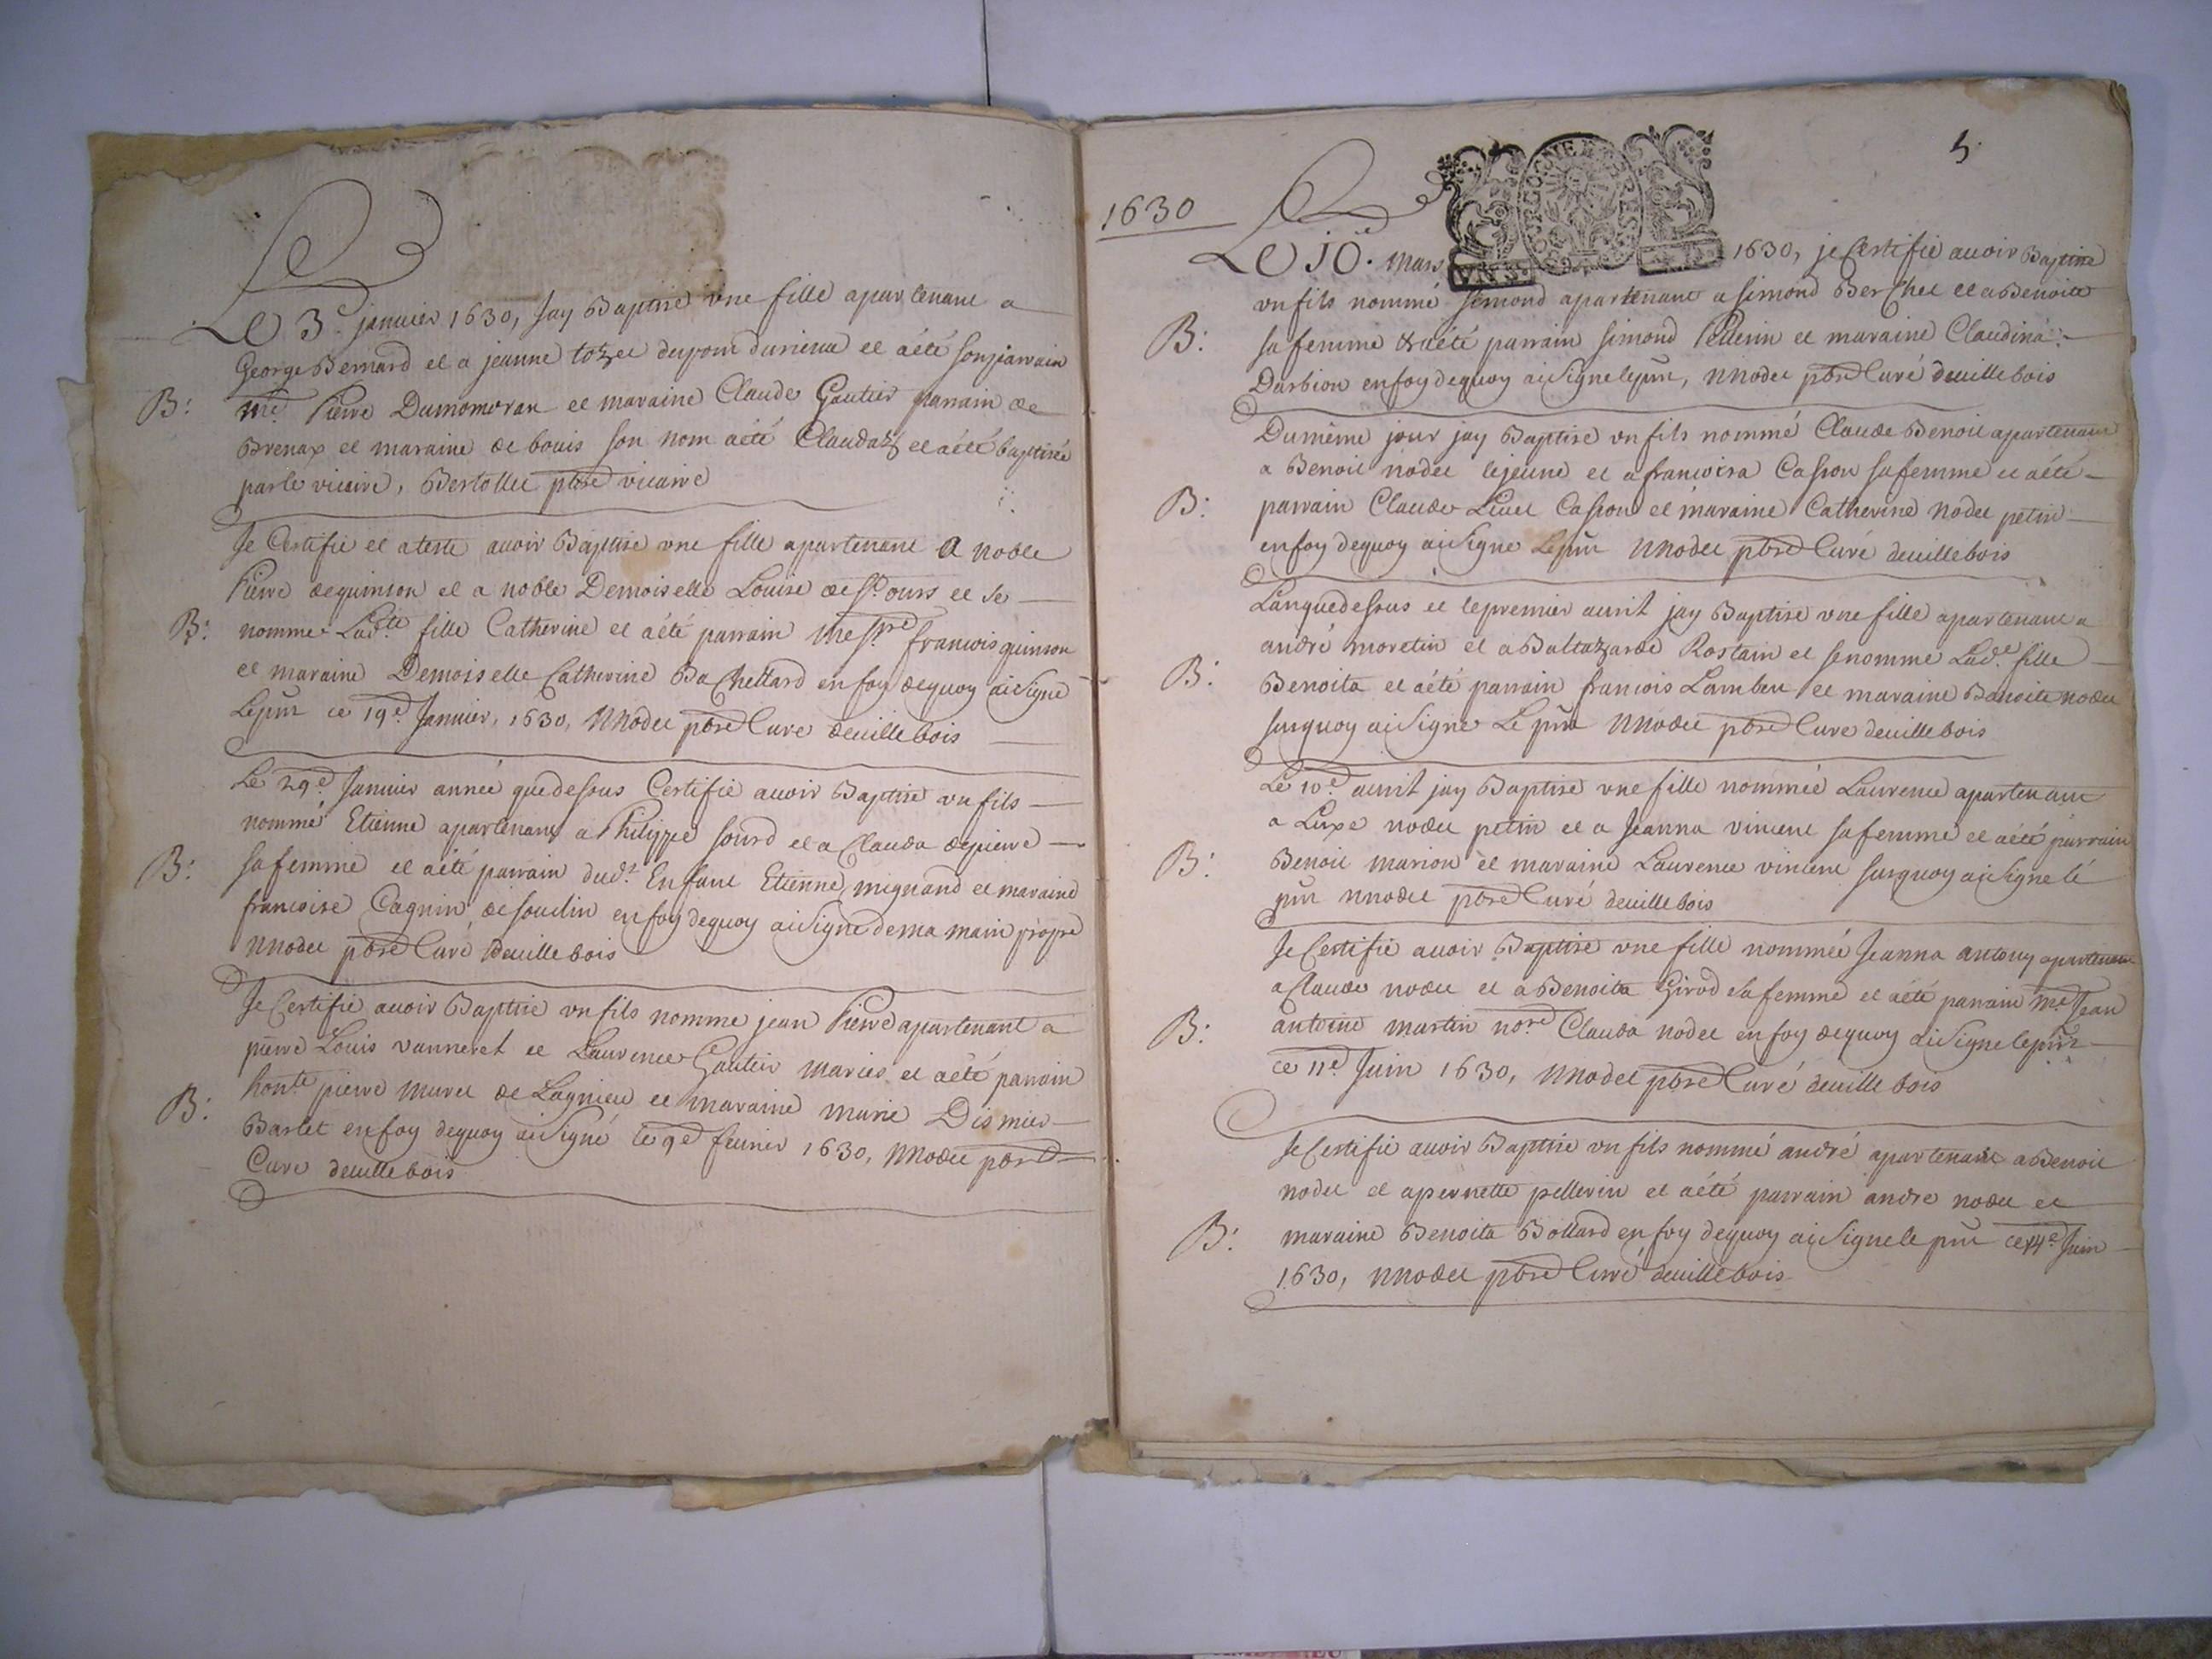 Le 3e janvier 1630, Jay Baptisé vne fille apartenant a
George Bernard et a jeanne tozet dupont durieux et a été son parrain
Me. Pierre Dumomoran et maraine Claude Gautier parrain de
Brenax et maraine de bouis son nom a été Claudaz et a été baptisée
par le vicaire, Bertollet pbre vicaire
Je Certifie et ateste auoir Baptisé vne fille apartenant A noble
Pierre dequinson et a noble Demoiselle Louise de St. ours et se
nomme Ladte. fille Catherine et a été parrain Messre. francois quinson
et maraine Demoiselle Catherine Bachettard en foy dequoy ai Signé
Le pnt ce 19e. Janvier, 1630, Nnodet pbre Curé deuillebois
Le 29e. Januier année que dessus Certifie auoir Baptisé vn fils
nommé Etienne apartenant a Philippe Sourd et a Clauda depierre
sa femme et a été parrain dud.t Enfant Etienne mignand et maraine
francoise Cagnin de soudin en foy dequoy ai Signé de ma main propre
Nnodet pbre Curé deuillebois
Je Certifie auoir Baptisé vn fils nomme jean Pierre apartenant a
pierre Louis vanneret et Laurence Gautier mariés et a été parrain
honte. pierre muret de Lagnieu et maraine marie Dismier
Barlet en foy dequoy ai Signé le 9e feurier 1630, Nnodet pbre
Curé deuillebois
B:
B:
B:
B:
5.
1630
Le 10e. mars 1630, je Certifie auoir Baptisé
vn fils nommé Simond apartenant a Simond Berchet et a Benoite
sa femme & a été parrain Simond Pellerin et maraine Claudina
Darbion en foy dequoy ai Signe le pnt, Nnodet pbre Curé deuillebois
Du même jour jay Baptisé vn fils nommé Claude Benoit apartenant
a Benoit nodet le jeune et a francoisa Casson sa femme et a été
parrain Claude Casson et maraine Catherine nodet petin
en foy dequoy ai Signe Le pnt Nnodet pbre Curé deuillebois
Lan que dessus et le premier auril jay Baptisé vne fille apartenant a
andré moretin et a Baltazarde Rostain et se nomme Lad.e fille
Benoita et a été parrain francois Lambert et maraine Benoite nodet
surquoy ai Signe Le pnt Nnodet pbre Curé deuillebois
Le 10e. auril jay Baptisé vne fille nommée Laurence apartenant
a Luxe nodet petin et a Jeanna vincent sa femme et a été parrain
Benoit marion et maraine Laurence vincent surquoy ai Signe le
pnt Nnodet pbre Curé deuillebois
Je Certifie auoir Baptisé vne fille nommée Jeanna antony apartenant
a Claude nodet et a Benoita Girod sa femme et a été parrain Me. Jean
antoine martin nore. Clauda nodet en foy dequoy ai Signe le pnt
ce 11e. Juin 1630, Nnodet pbre Curé deuillebois
Je Certifie auoir Baptisé vn fils nommé andré apartenant a Benoit
nodet et a pernette pellerin et a été parrain andre nodet et
maraine Benoita Bottard en foy dequoy ai Signe le pnt ce 14e. Juin
1630, Nnodet pbre Curé deuillebois
B:
B:
B:
B:
B:
B: